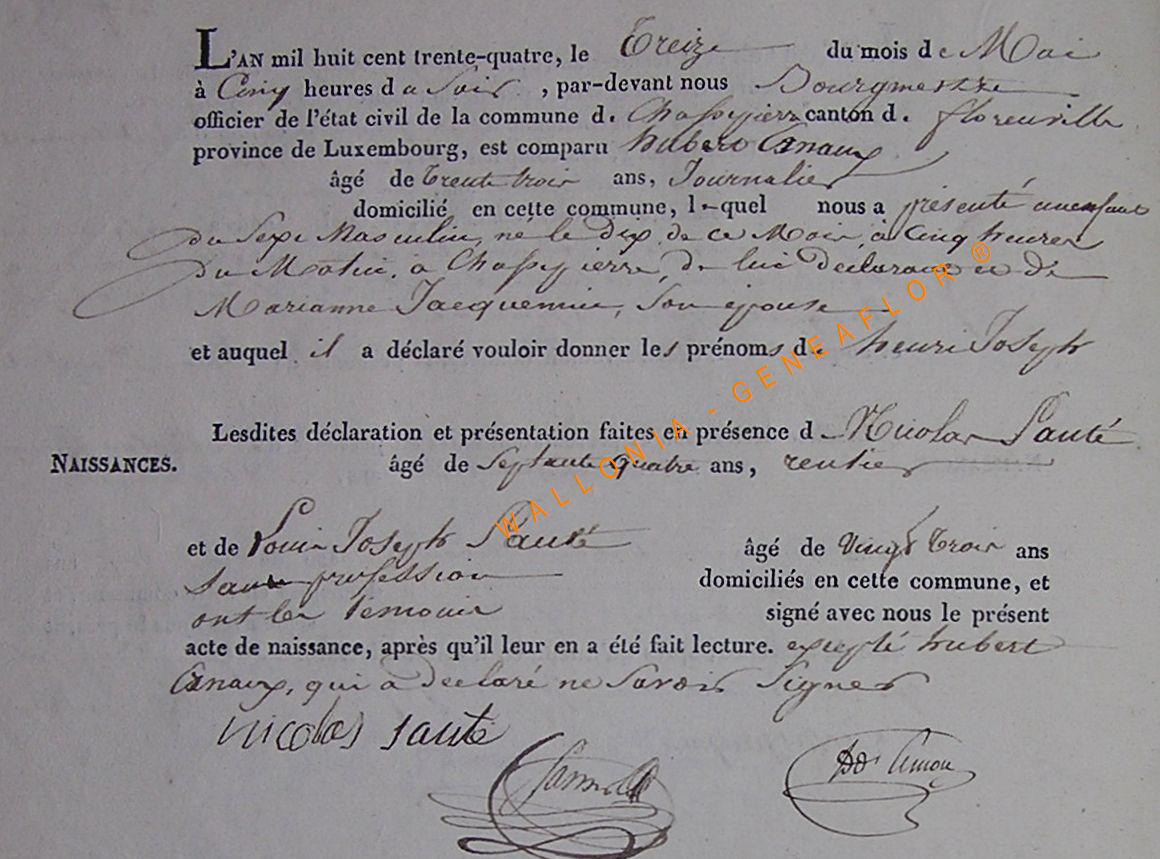 L'AN mil huit cent trente-quatre, le Treize du mois de Mai
à Cinq heures du Soir, par-devant nous Bourgmestre
officier de l'état civil de la commune de Chassepierre canton de florenville
province de Luxembourg, est comparu hubert Arnaux
âgé de trente trois ans, Journalier
domicilié en cette commune, lequel nous a présenté un enfant
du Sexe Masculin, né le dix de ce Mois, à cinq heures
du Matin, à Chassepierre, de lui déclarant et de
Marianne Jacquemin, Son épouse
et auquel il a déclaré vouloir donner les prénoms de henri Joseph
Lesdites déclaration et présentation faites en présence de Nicolas Santé
NAISSANCES.
âgé de Septante quatre ans, rentier
et de Louis Joseph Santé âgé de Vingt trois ans
sans profession domiciliés en cette commune, et
ont les témoins signé avec nous le présent
acte de naissance, après qu'il leur en a été fait lecture. excepté hubert
Arnaux, qui a déclaré ne Savoir Signer
nicolas santé
WALLONIA - GENEAFLOR ®